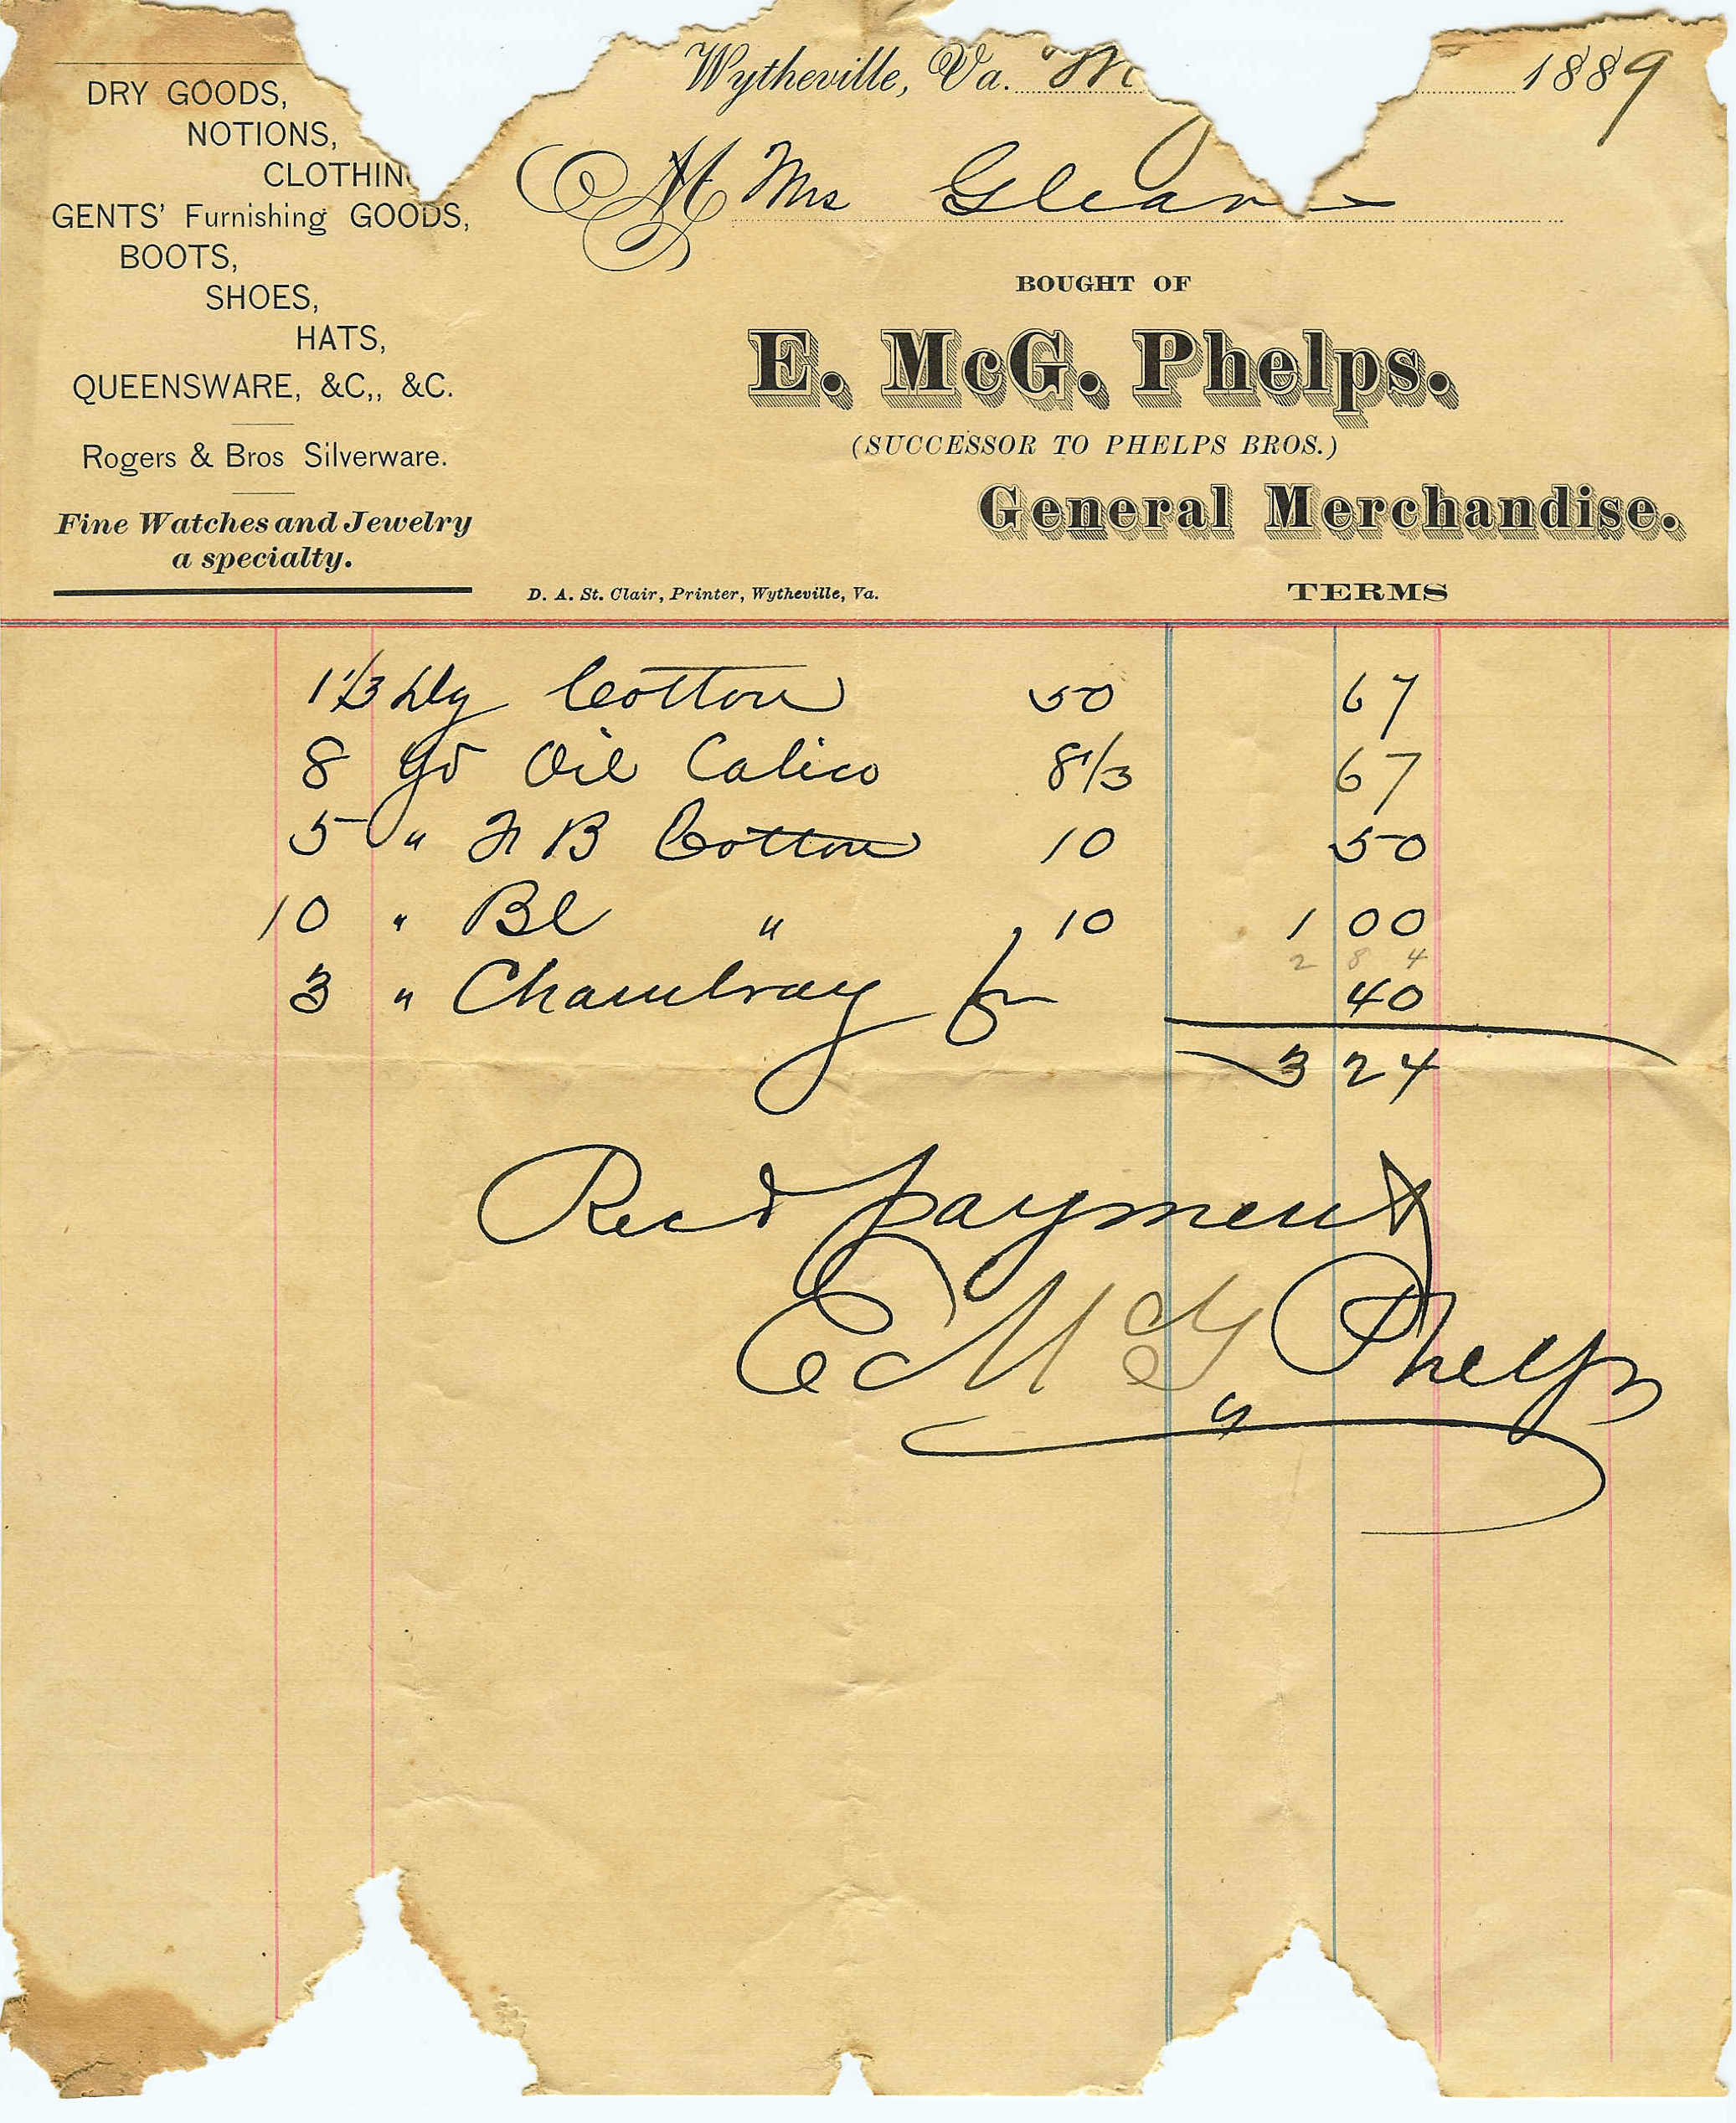 Wytheville, Va. M 1889
M Mrs Gleav
DRY GOODS,
NOTIONS,
CLOTHIN
GENTS' Furnishing GOODS,
BOOTS,
SHOES,
HATS,
QUEENSWARE, &C,, &C.
Rogers & Bros Silverware.
Fine Watches and Jewelry
a specialty.
BOUGHT OF
E. McG. Phelps.
(SUCCESSOR TO PHELPS BROS.)
General Merchandise.
D. A. St. Clair, Printer, Wytheville, Va.
TERMS
1 1/3 Dz Cotton 50 67
8 yd Oil Calico 8 1/3 67
5 " B Cotton 10 50
10 " Bl " 10 1 00
2 8 4
3 " Chambray for 40
3 24
Recd payment
E McG Phelps